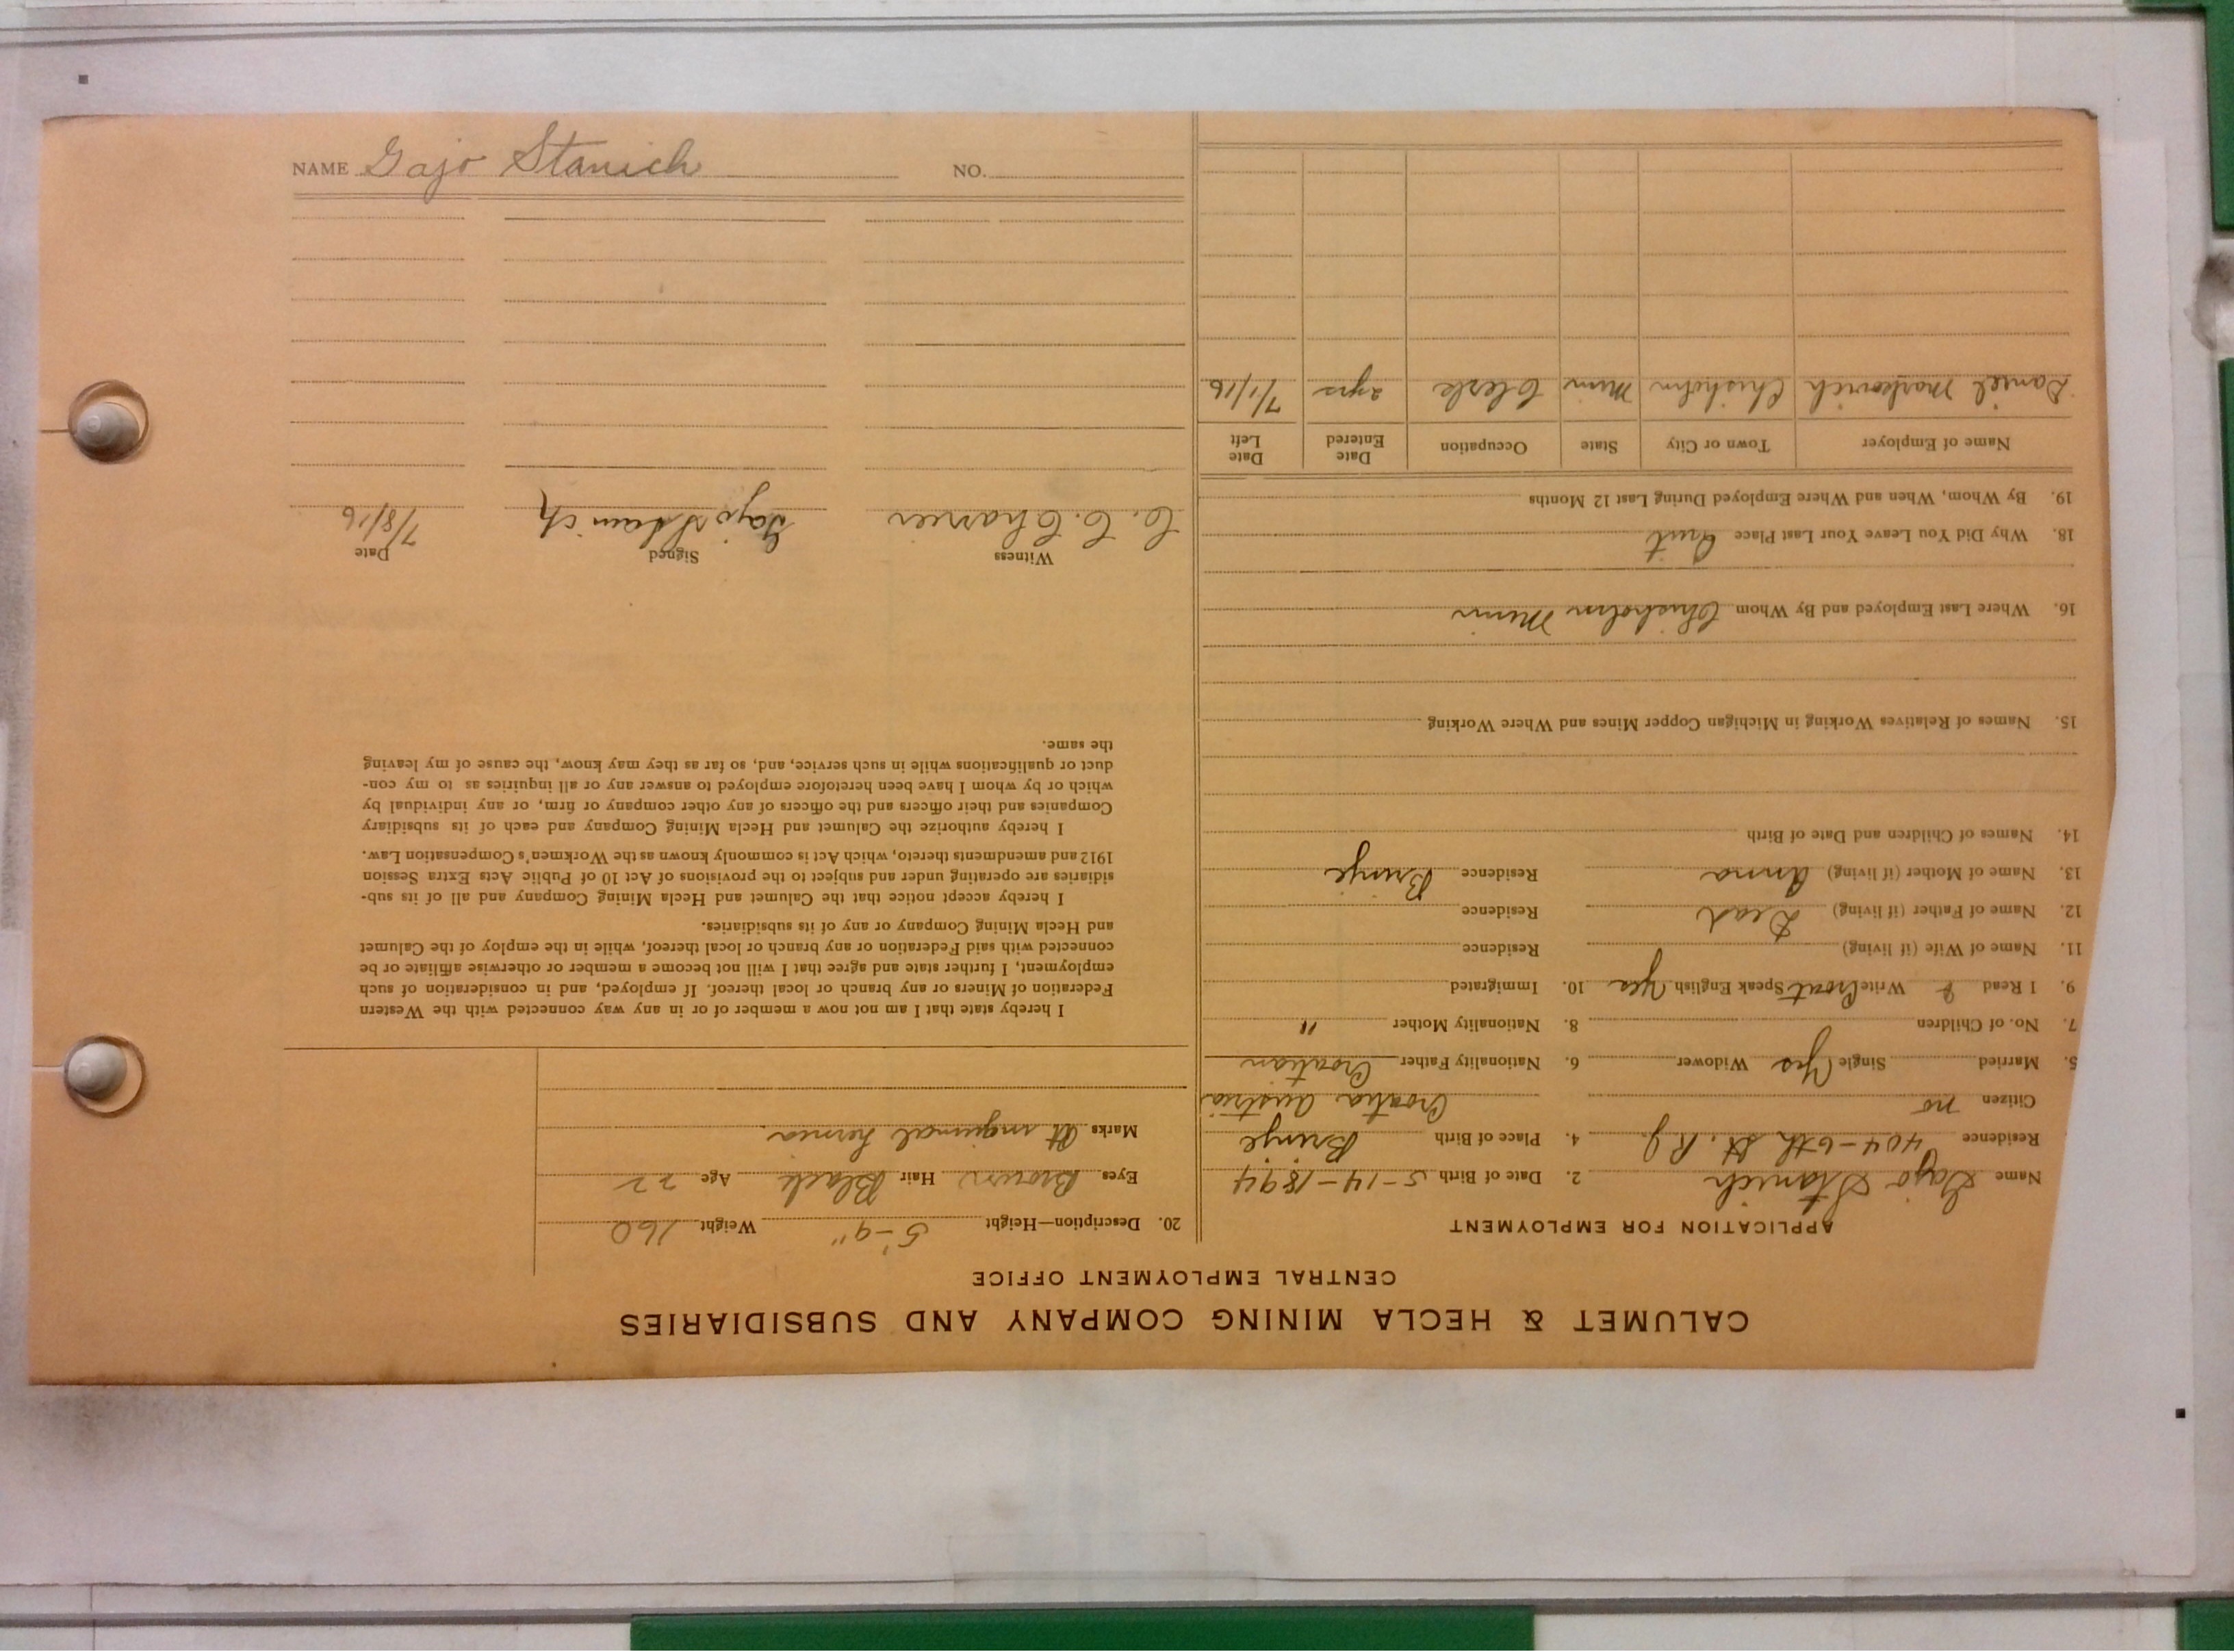 NAME Gajo Stanich NO.
CALUMET & HECLA MINING COMPANY AND SUBSIDIARIES
CENTRAL EMPLOYMENT OFFICE
APPLICATION FOR EMPLOYMENT
Name Gajo Stanich 2. Date of Birth 5-14-1894
Residence 404-6th St. R.J. 4. Place of Birth Brinje
Citizen no Croatia Austria
5. Married Single Yes Widower 6. Nationality Father Croatian
7. No. of Children 8. Nationality Mother "
9. I Read & Write Croat Speak English Yes 10. Immigrated
11. Name of Wife (if living) Residence
12. Name of Father (if living) Dead Residence
13. Name of Mother (if living) Anna Residence Brinje
14. Names of Children and Date of Birth
15. Names of Relatives Working in Michigan Copper Mines and Where Working
16. Where Last Employed and By Whom Chisholm Minn
18. Why Did You Leave Your Last Place Quit
19. By Whom, When and Where Employed During Last 12 Months
Name of Employer Town or City State Occupation Date Entered Date Left
Daniel Markovich Chisholm Minn Clerk 2 yrs 7/1/16
20. Description—Height 5'-9" Weight 160
Eyes Brown Hair Black Age 22
Marks Rt inguinal hernia
I hereby state that I am not now a member of or in any way connected with the Western
Federation of Miners or any branch or local thereof. If employed, and in consideration of such
employment, I further state and agree that I will not become a member or otherwise affiliate or be
connected with said Federation or any branch or local thereof, while in the employ of the Calumet
and Hecla Mining Company or any of its subsidiaries.
I hereby accept notice that the Calumet and Hecla Mining Company and all of its sub-
sidiaries are operating under and subject to the provisions of Act 10 of Public Acts Extra Session
1912 and amendments thereto, which Act is commonly known as the Workmen's Compensation Law.
I hereby authorize the Calumet and Hecla Mining Company and each of its subsidiary
Companies and their officers and the officers of any other company or firm, or any individual by
which or by whom I have been heretofore employed to answer any or all inquiries as to my con-
duct or qualifications while in such service, and, so far as they may know, the cause of my leaving
the same.
Witness Signed Date
C. C. Gajo Stanich 7/8/16